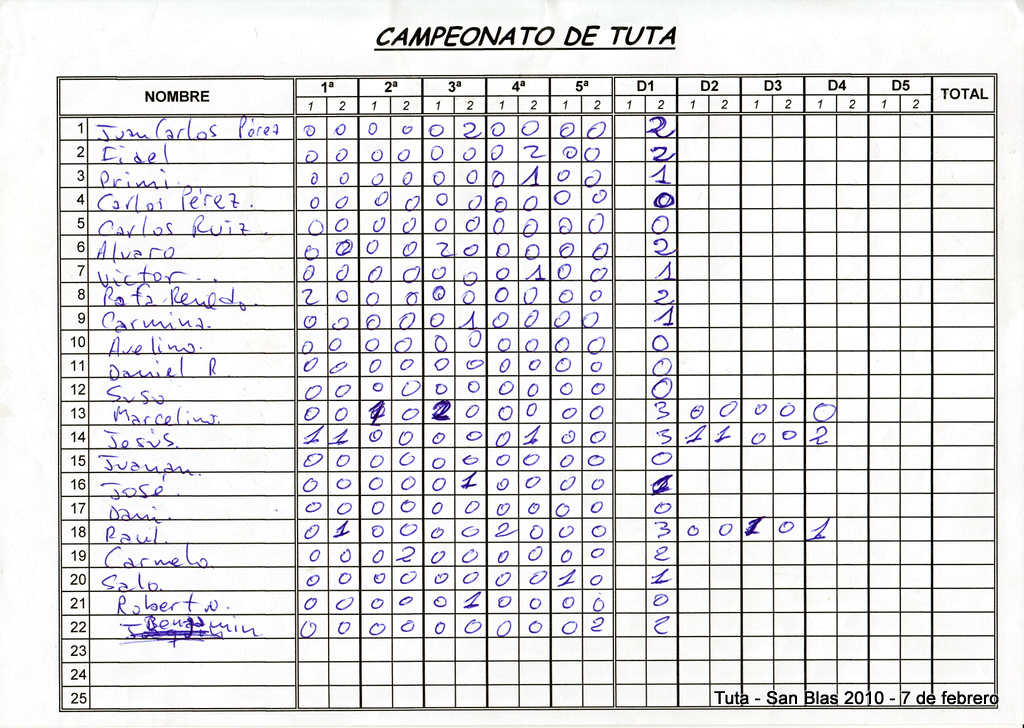 CAMPEONATO DE TUTA
NOMBRE 1ª 2ª 3ª 4ª 5ª D1 D2 D3 D4 D5 TOTAL
1 2 1 2 1 2 1 2 1 2 1 2 1 2 1 2 1 2 1 2
1 Juan Carlos Pérez 0 0 0 0 0 2 0 0 0 0 2
2 Fidel 0 0 0 0 0 0 0 2 0 0 2
3 Primi. 0 0 0 0 0 0 0 1 0 0 1
4 Carlos Pérez. 0 0 0 0 0 0 0 0 0 0 0
5 Carlos Ruiz. 0 0 0 0 0 0 0 0 0 0 0
6 Alvaro 0 0 0 0 2 0 0 0 0 0 2
7 Victor 0 0 0 0 0 0 0 1 0 0 1
8 Rafa Renedo. 2 0 0 0 0 0 0 0 0 0 2
9 Carmina. 0 0 0 0 0 1 0 0 0 0 1
10 Avelino. 0 0 0 0 0 0 0 0 0 0 0
11 Daniel R 0 0 0 0 0 0 0 0 0 0 0
12 Suso 0 0 0 0 0 0 0 0 0 0 0
13 Marcelino. 0 0 1 0 2 0 0 0 0 0 3 0 0 0 0 0
14 Jesús. 1 1 0 0 0 0 0 1 0 0 3 1 1 0 0 2
15 Juanan. 0 0 0 0 0 0 0 0 0 0 0
16 José. 0 0 0 0 0 1 0 0 0 0 1
17 Dani. 0 0 0 0 0 0 0 0 0 0 0
18 Raul. 0 1 0 0 0 0 2 0 0 0 3 0 0 1 0 1
19 Carmelo. 0 0 0 2 0 0 0 0 0 0 2
20 Salo. 0 0 0 0 0 0 0 0 1 0 1
21 Roberto. 0 0 0 0 0 1 0 0 0 0 0
22 Benjamin 0 0 0 0 0 0 0 0 0 2 2
23
24
25
Tuta - San Blas 2010 - 7 de febrero